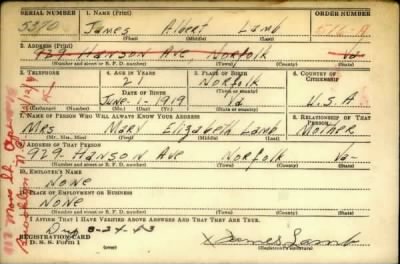 SERIAL NUMBER 1. NAME (Print) ORDER NUMBER
5390 James Albert Lamb
(First) (Middle) (Last)
2. ADDRESS (Print)
929 Hanson Ave, Norfolk Va-
(Number and street or R. F. D. number) (Town) (County) (State)
3. TELEPHONE 4. AGE IN YEARS 5. PLACE OF BIRTH 6. COUNTRY OF CITIZENSHIP
21 Norfolk
DATE OF BIRTH (Town or county)
June-1-1919 Va U.S.A.
(Exchange) (Number) (Mo.) (Day) (Yr.) (State or country)
7. NAME OF PERSON WHO WILL ALWAYS KNOW YOUR ADDRESS 8. RELATIONSHIP OF THAT PERSON
Mrs Mary Elizabeth Lamb Mother
(Mr., Mrs., Miss) (First) (Middle) (Last)
9. ADDRESS OF THAT PERSON
929 Hanson Ave Norfolk Va-
(Number and street or R. F. D. number) (Town) (County) (State)
10. EMPLOYER'S NAME
None
11. PLACE OF EMPLOYMENT OR BUSINESS
None
(Number and street or R. F. D. number) (Town) (County) (State)
I AFFIRM THAT I HAVE VERIFIED ABOVE ANSWERS AND THAT THEY ARE TRUE.
REGISTRATION CARD
D. S. S. Form 1 James Lamb
(Registrant's signature)